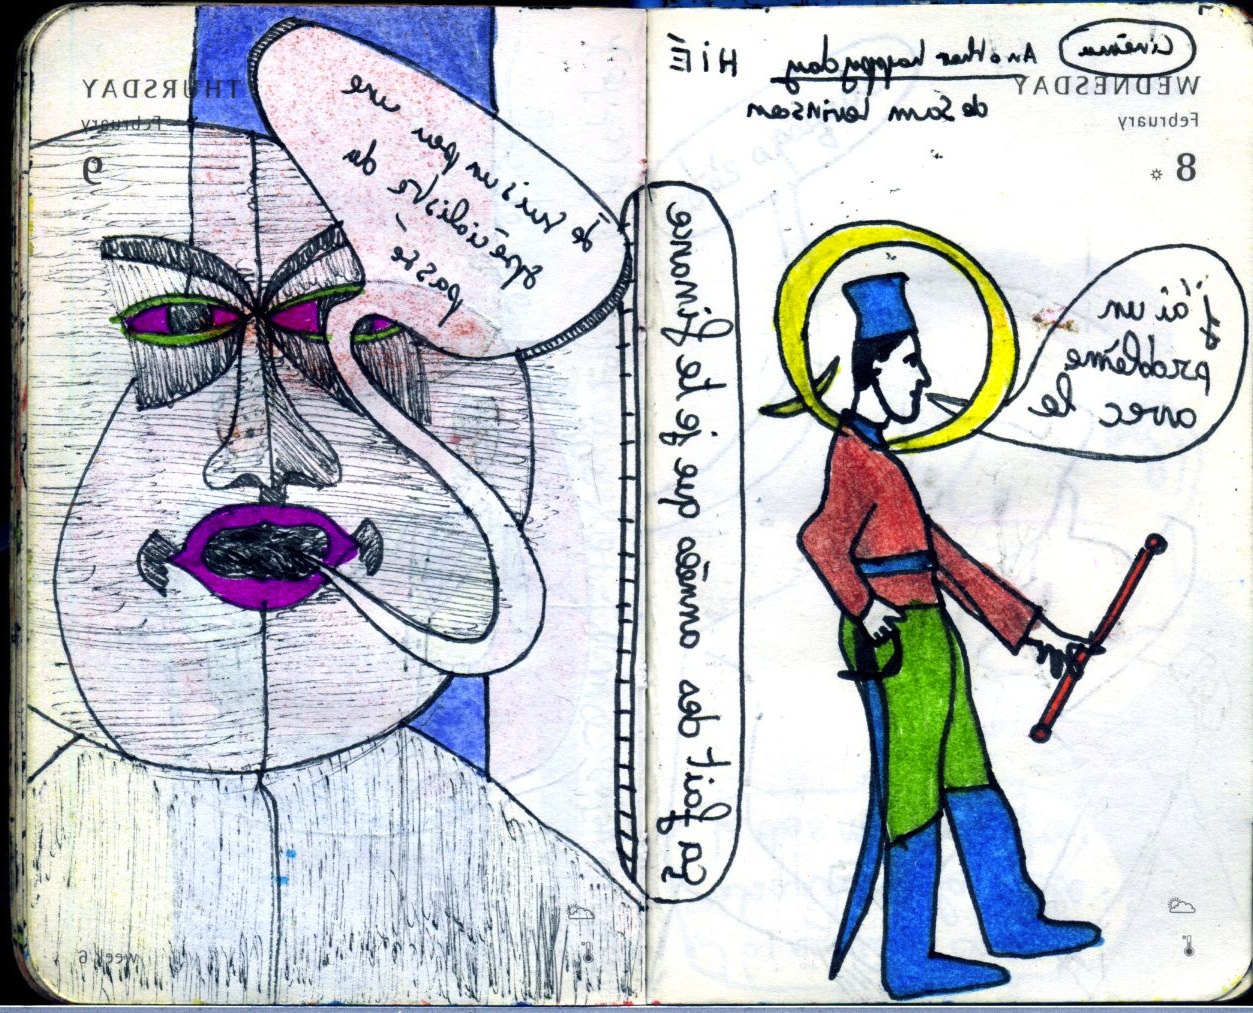 cinéma Another happy day
WEDNESDAY
de Sam Levinson
February
8
j'ai un
problème
avec le
ça fait des années que je te finance
THURSDAY
February
9
Je suis un peu une
spécialiste du
passé
week 6